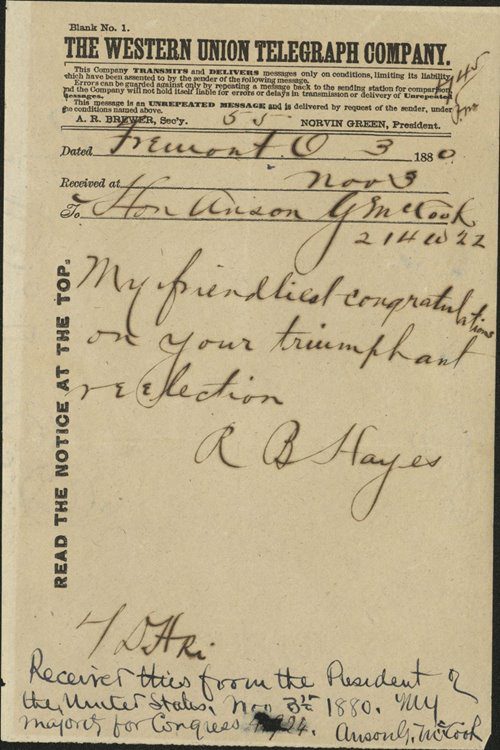 Blank No. 1.
THE WESTERN UNION TELEGRAPH COMPANY.
This Company TRANSMITS and DELIVERS messages only on conditions, limiting its liability,
which have been assented to by the sender of the following message.
Errors can be guarded against only by repeating a message back to the sending station for comparison,
and the Company will not hold itself liable for errors or delays in transmission or delivery of Unrepeated
Messages.
This message is an UNREPEATED MESSAGE and is delivered by request of the sender, under
the conditions named above.
A. R. BREWER, Sec'y. 55 NORVIN GREEN, President.
Dated Fremont. O 3 1880
Received at Nov 3
To Hon Anson G McCook
214 W 22
My friendliest congratulations
on your triumphant
reelection
R B Hayes
READ THE NOTICE AT THE TOP.
Received this from the President of
the United States, Nov 3rd 1880. My
majority for Congress 24.
Anson G. McCook